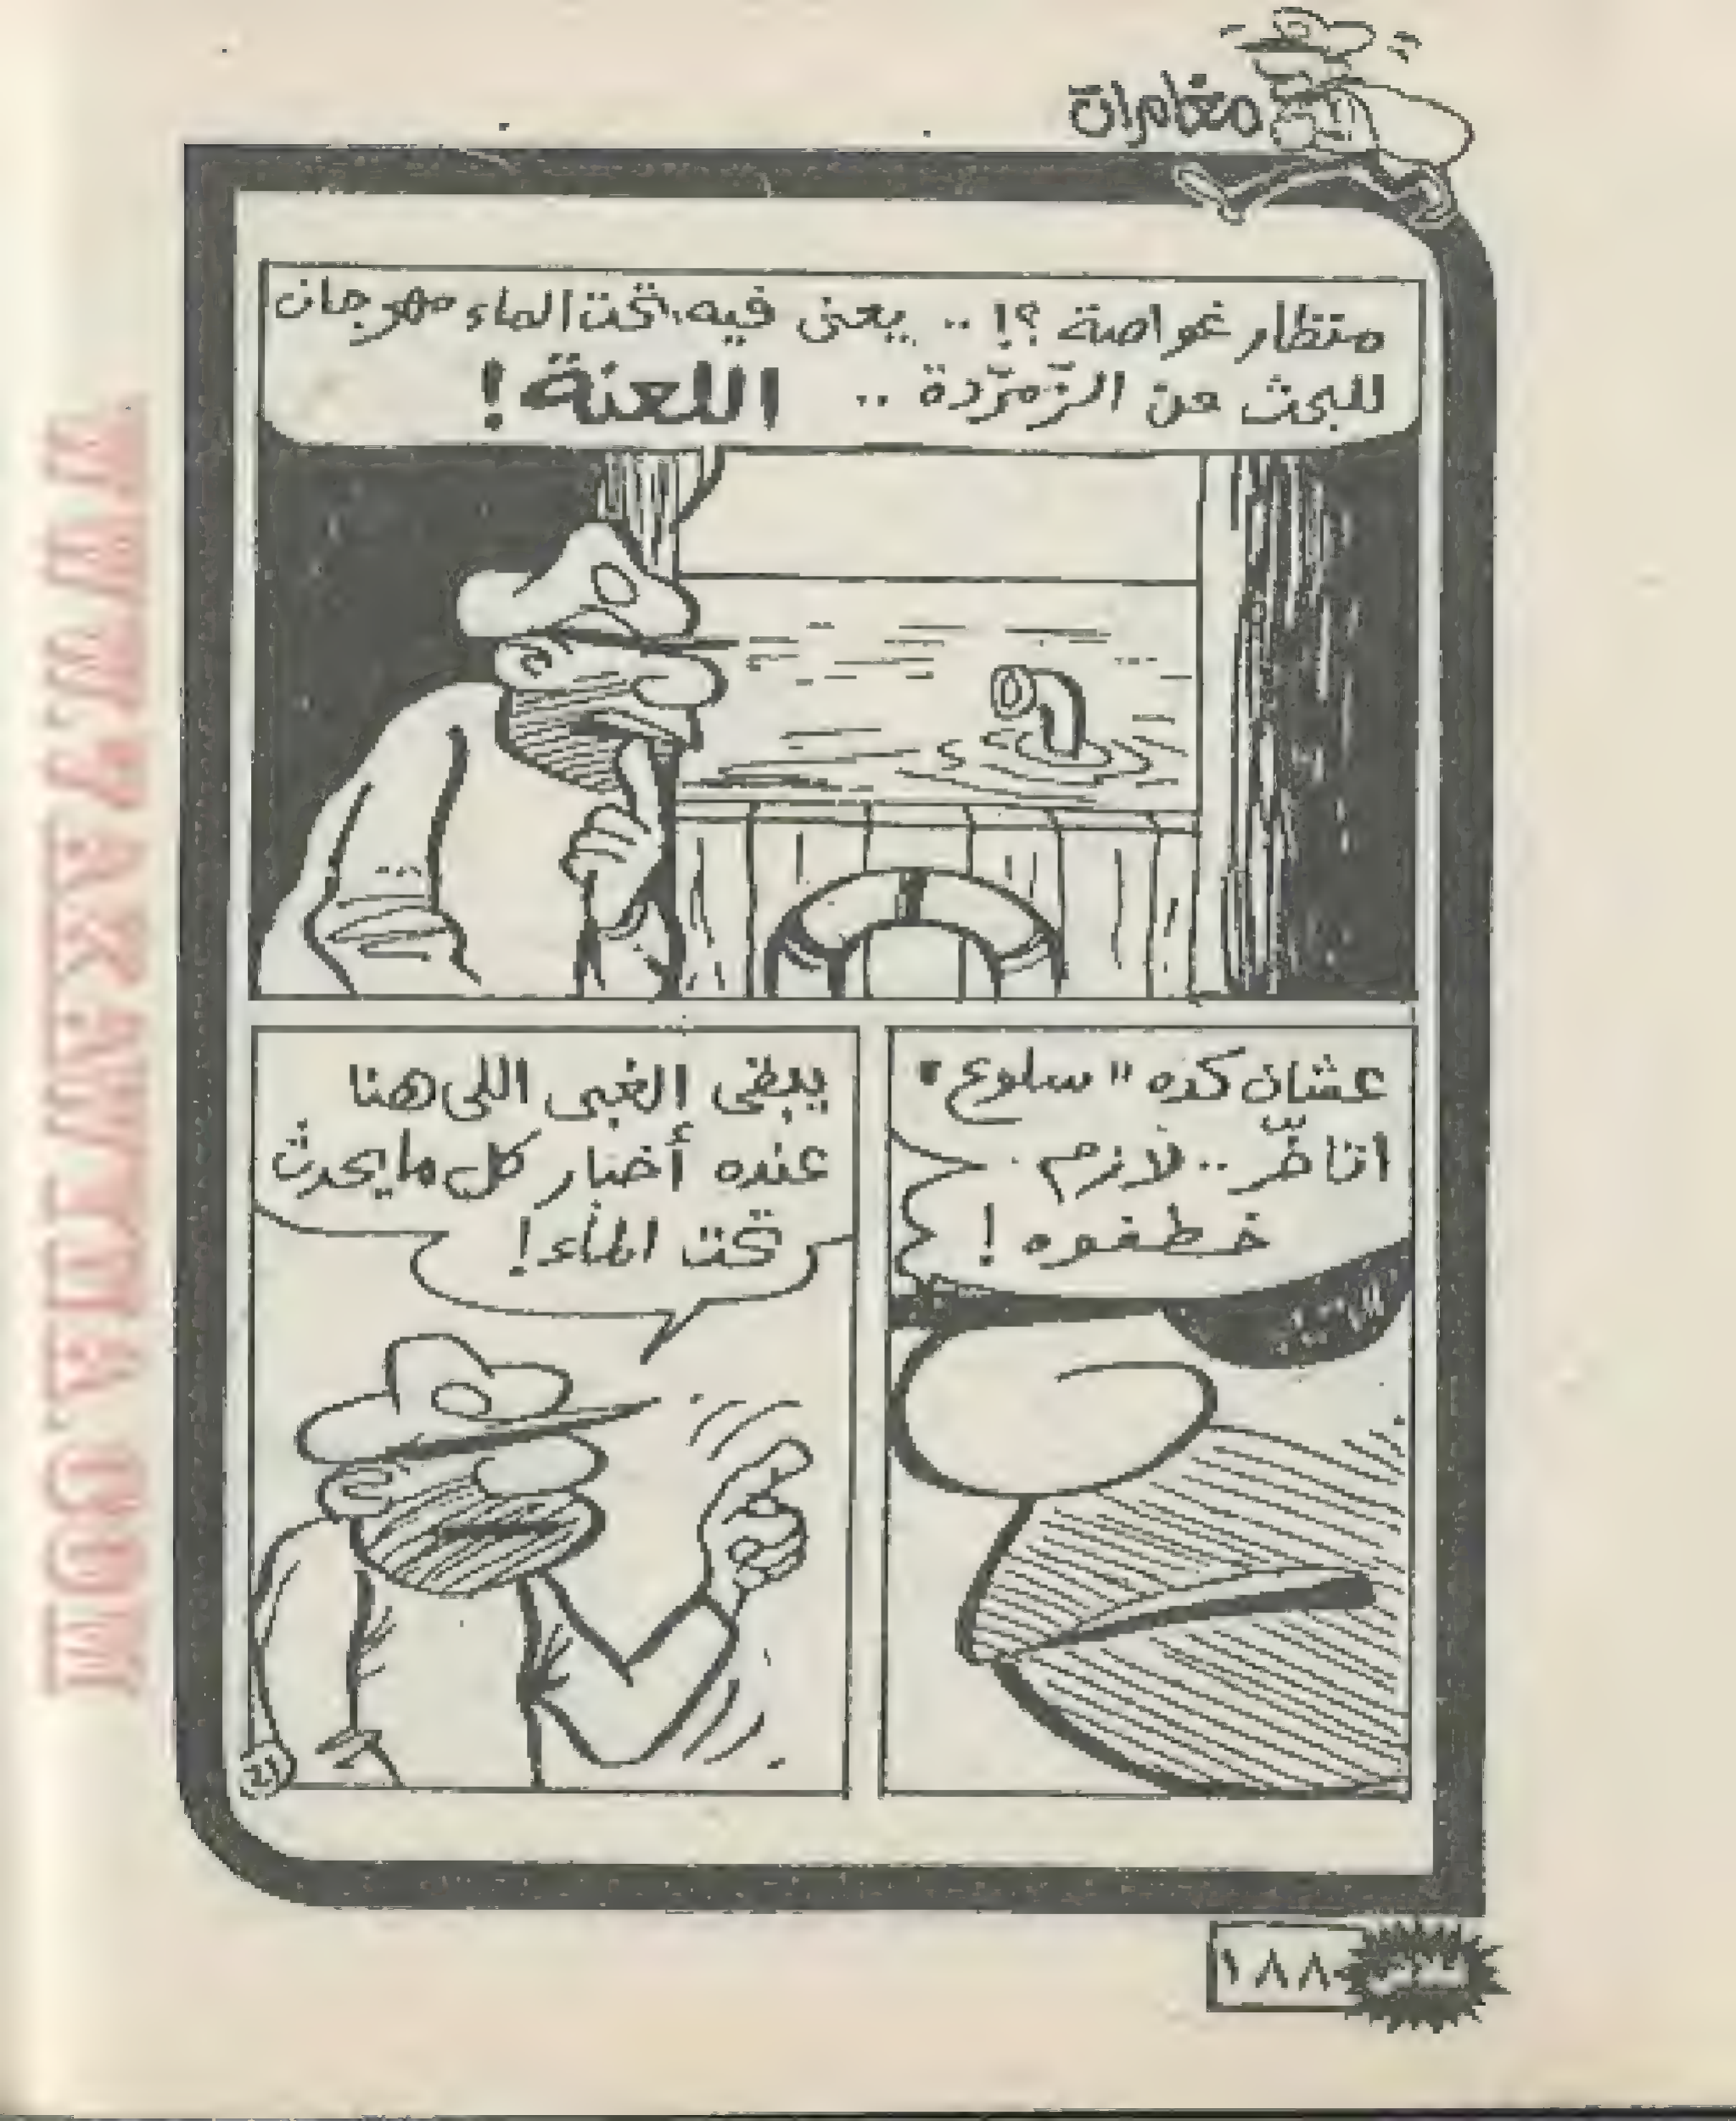 مغامرات
منظار غواصة ؟! .. يعنى فيه تحت الماء مهرجان
للبحث عن الزّمرّدة .. اللعنة !
عشان كده "سلوع"
اتأخّر .. لازم
خطفوه !
يبقى الغبى اللى هنا
عنده أخبار كل ما يحدث
تحت الماء !
21
فلاش ١٨٨
WWW.RAKAWITY.COM